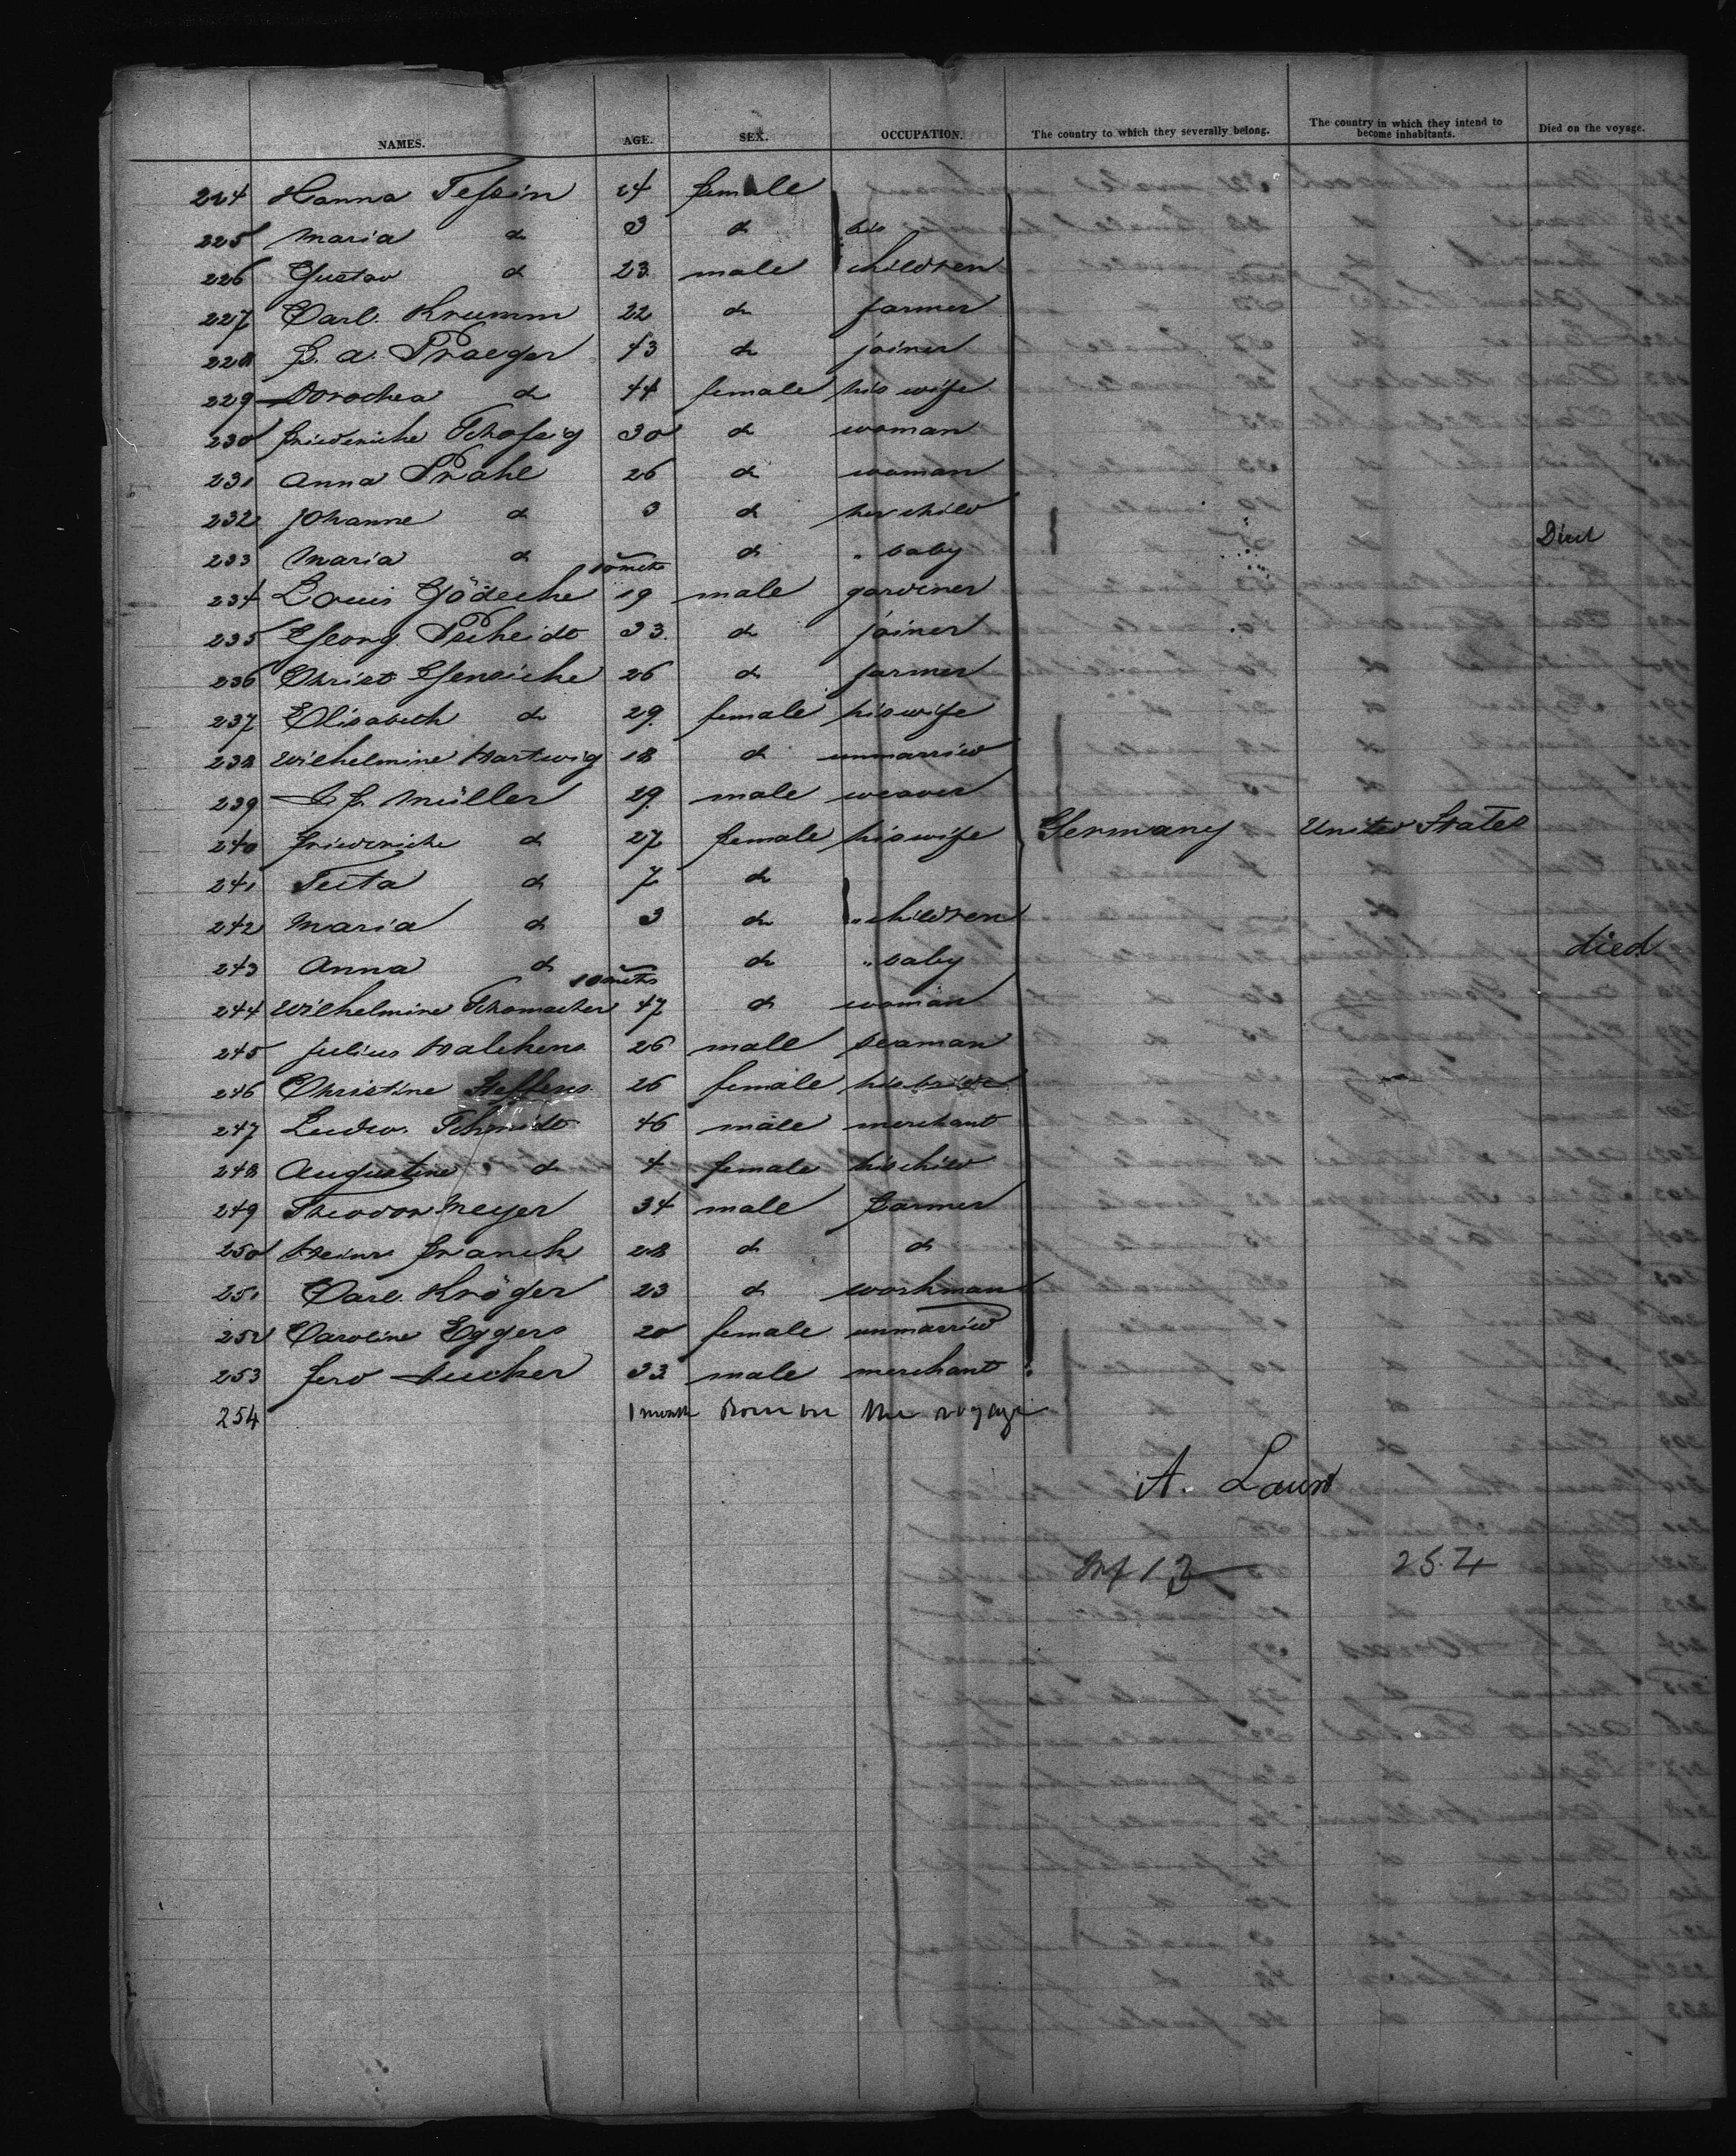 NAMES. AGE. SEX. OCCUPATION. The country to which they severally belong. The country in which they intend to become inhabitants. Died on the voyage.
224 Hanna Teßin 24 female
225 Maria do 3 do his
226 Gustav do 23 male children
227 Carl Krumm 22 do farmer
228 F. A. Praeger 43 do joiner
229 Dorothea do 44 female his wife
230 Friederike Schoßig 30 do woman
231 Anna Prahl 26 do woman
232 Johanne do 3 do her child
233 Maria do 10 mths do " baby Died
234 Louis Gödecke 19 male gardiner
235 Georg Pscheidt 33 do joiner
236 Christ Gensicke 26 do farmer
237 Elisabeth do 29 female his wife
238 Wilhelmine Hartwig 18 do unmarried
239 J. F. Müller 29 male weaver
240 Friederike do 27 female his wife Germany United States
241 do 7 do
242 Maria do 3 do " children
243 Anna do 10 mths do " baby died
244 Wilhelmine Schomacker 47 do woman
245 Julius Halekens 26 male seaman
246 Christine Steffens 26 female his bride
247 Ludw. Schmidt 46 male merchant
248 Augustine do 4 female his child
249 Theodor Meyer 34 male farmer
250 Heinr. Franck 28 do do
251 Carl Kröger 23 do workman
252 Caroline Eggers 20 female unmarried
253 Ferd 33 male merchant
254 1 month Born on the voyage
A.
254